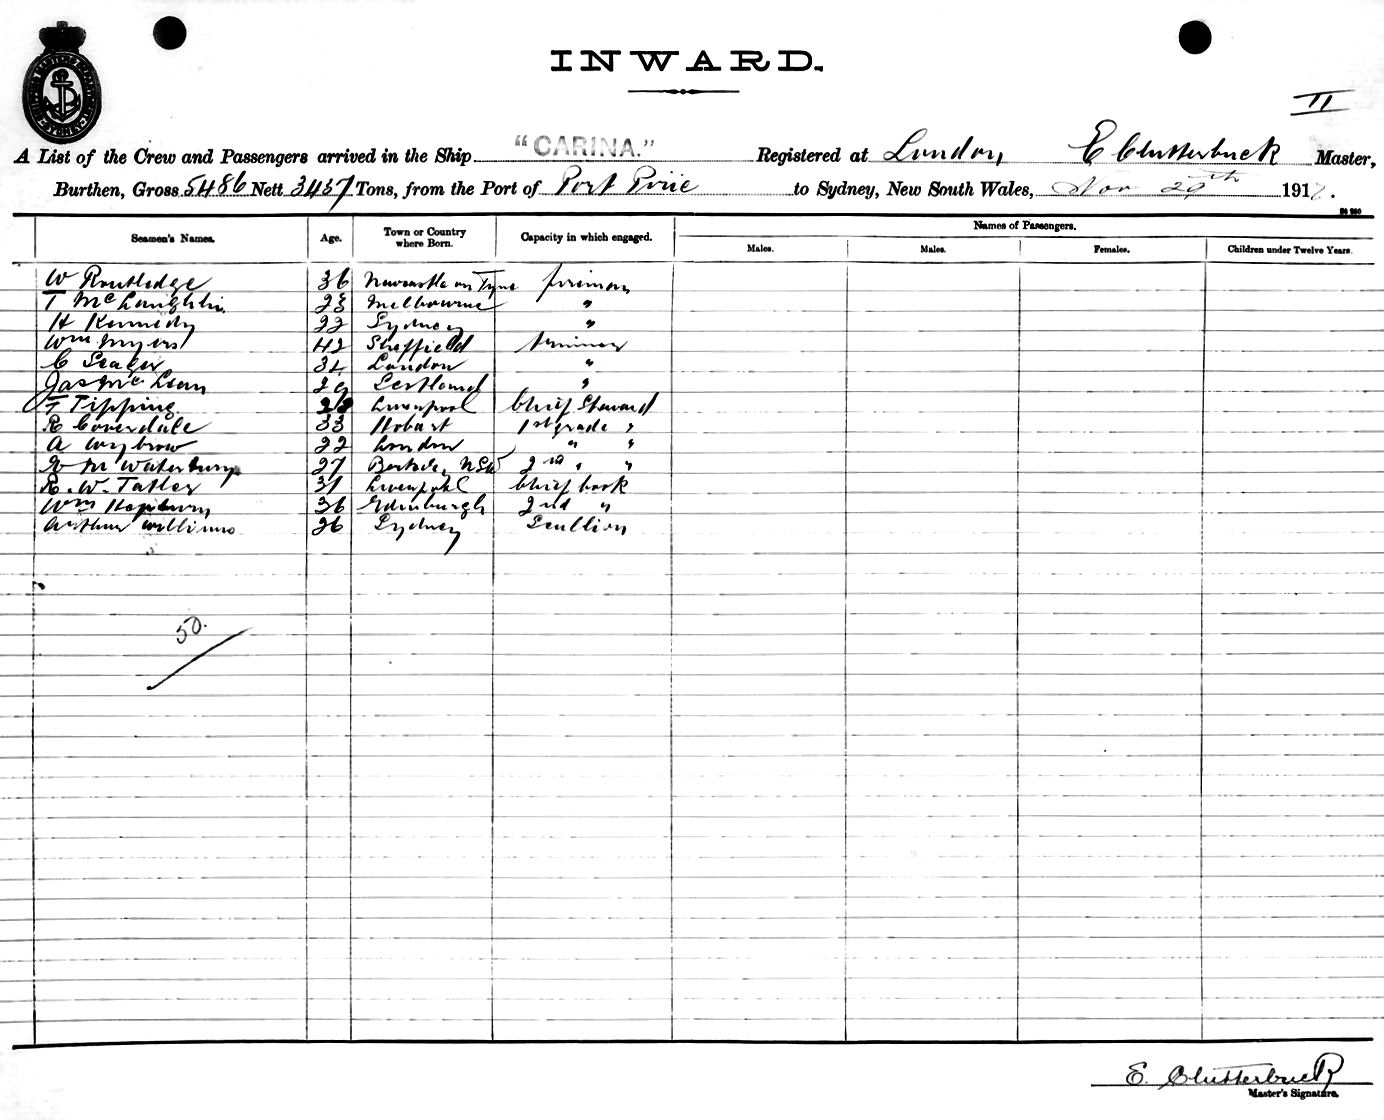 INWARD.
II
A List of the Crew and Passengers arrived in the Ship "CARINA." Registered at London E Clutterbuck Master,
Burthen, Gross 5486 Nett 3457 Tons, from the Port of Port Pirie to Sydney, New South Wales, Nov 29th 1917.
Names of Passengers.
Seamen's Names. Age. Town or Country where Born. Capacity in which engaged. Males. Males. Females. Children under Twelve Years.
W Routledge 36 Newcastle on Tyne fireman
T McLaughlin 23 Melbourne "
H Kennedy 22 Sydney "
Wm Myers 42 Sheffield trimmer
C Seager 34 London "
Jas McLean 29 Scotland "
T Tipping Liverpool Chief Steward
R Coverdale 33 Hobart 1st grade "
A Wybrow 22 London " "
M Waterbury 27 NSW 2nd " "
R. W. Tatler 31 Liverpool Chief Cook
Wm Hepburn 36 Edinburgh 2nd "
Arthur Williams 26 Sydney Scullion
50.
E. Clutterbuck
Master's Signature.